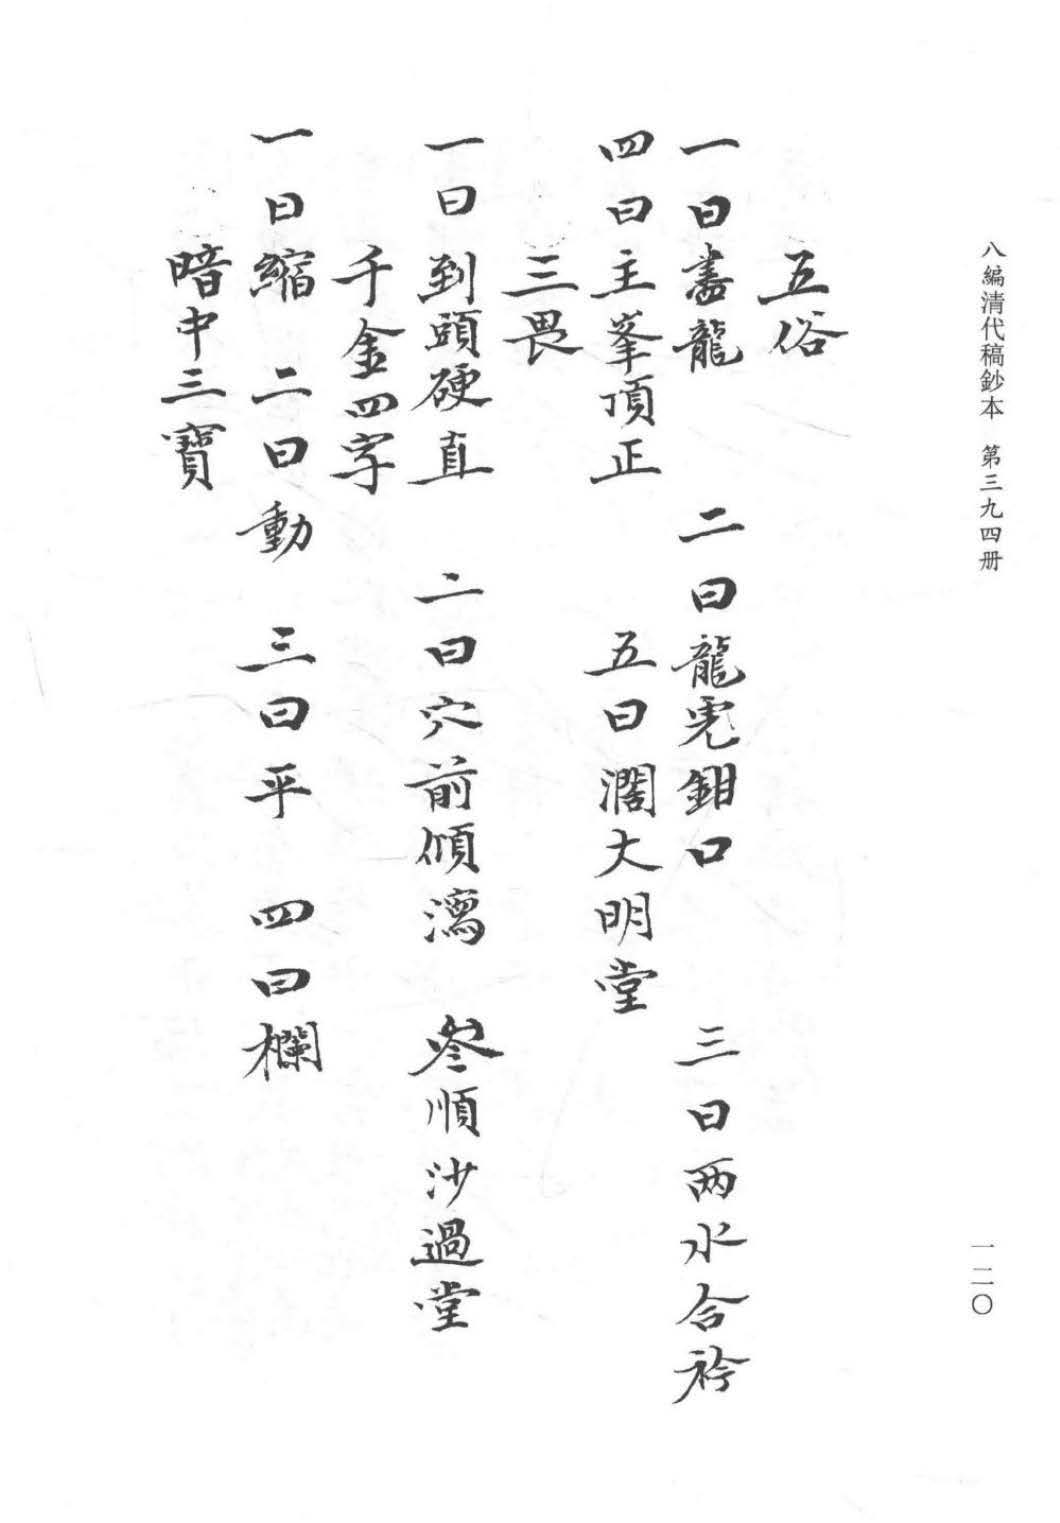 八編清代稿鈔本 第三九四册
一二〇
五俗
一曰龍 二曰龍虎鉗口 三曰两水合衿
四曰主峯頂正 五曰濶大明堂
三畏
一曰到頭硬直 二曰穴前傾瀉 叄順沙過堂
千金四字
一曰縮 二曰動 三曰平 四曰欄
暗中三寶